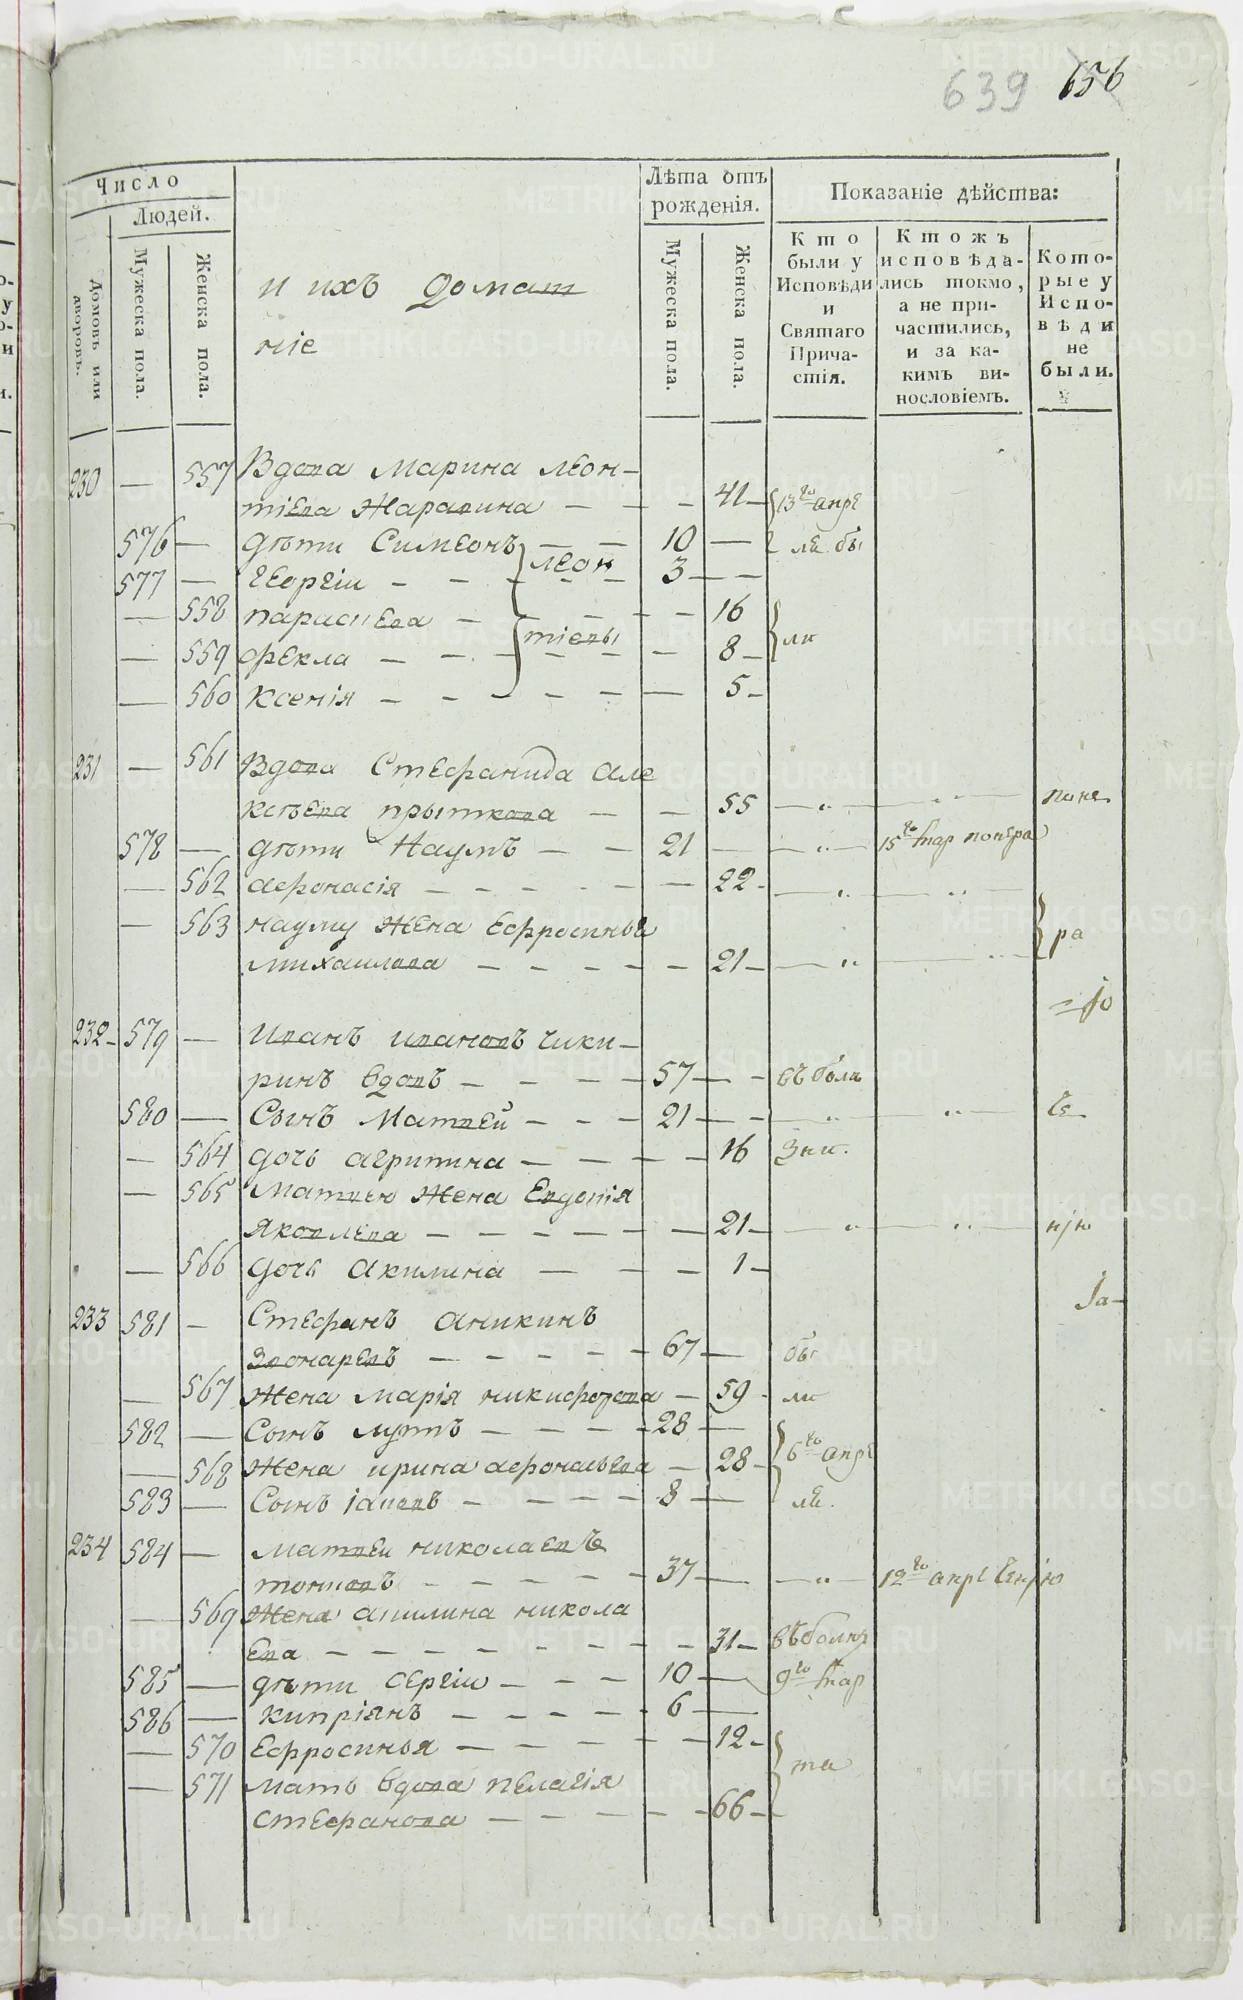 639 656
Число
Людей.
Домовъ или дворовъ.
Мужеска пола.
Женска пола.
и ихъ домаш
ніе
Лѣта отъ рожденія.
Мужеска пола.
Женска пола.
Показаніе дѣйства:
Кто были у Исповѣди и Святаго Причастія.
Ктожъ исповѣдались токмо, а не причастились, и за какимъ винословіемъ.
Которые у Исповѣди не были.
230 — 557 Вдова Марина Леон-
тіева Жаравина — — — 41 — 13го апрѣ
576 — дѣти Симеонъ — — 10 — ля бы
577 — Георгіи — — — 3 — —
леон
— 558 параскева — — — 16
тіевы
— 559 фекла — — — 8 — ли
— 560 Ксенія — — — 5 —
231 — 561 Вдова Стефанида але
ксѣева прыткова — — 55
578 — дѣти Наумъ — — 21 — 15го мар
— 562 афонасія — — — 22
— 563 науму жена Ефросинья
михаилова — — — 21 — ра
232 — 579 — Иванъ ивановъ чики-
ринъ вдовъ — — — 57 — —
580 — Сынъ Матвей — — — 21 — —
— 564 дочь агрипина — — — 16
— 565 матвею жена Евдокія
яковлева — — — 21 —
— 566 дочь акилина — — — 1 —
233 581 — Стефанъ аникинъ
звонаревъ — — — 67 — бы
— 567 жена марія никифорова — 59 — ли
582 — Сынъ лупъ — — — 28 —
— 568 жена ирина афонасьева — 28 — 6го апрѣ
583 — Сынъ іаковъ — — — 8 — ля.
234 584 — матвеи николаевъ
— — — 37 — 12го апрѣ
— 569 жена акилина никола
ева — — — 31 —
585 — дѣти сергіи — — — 10 — 9го мар
586 — кипріянъ — — — 6 —
— 570 Ефросинья — — — 12 —
— 571 мать вдова пелагія
та
стефанова — — — 66 —
METRIKI.GASO-URAL.RU